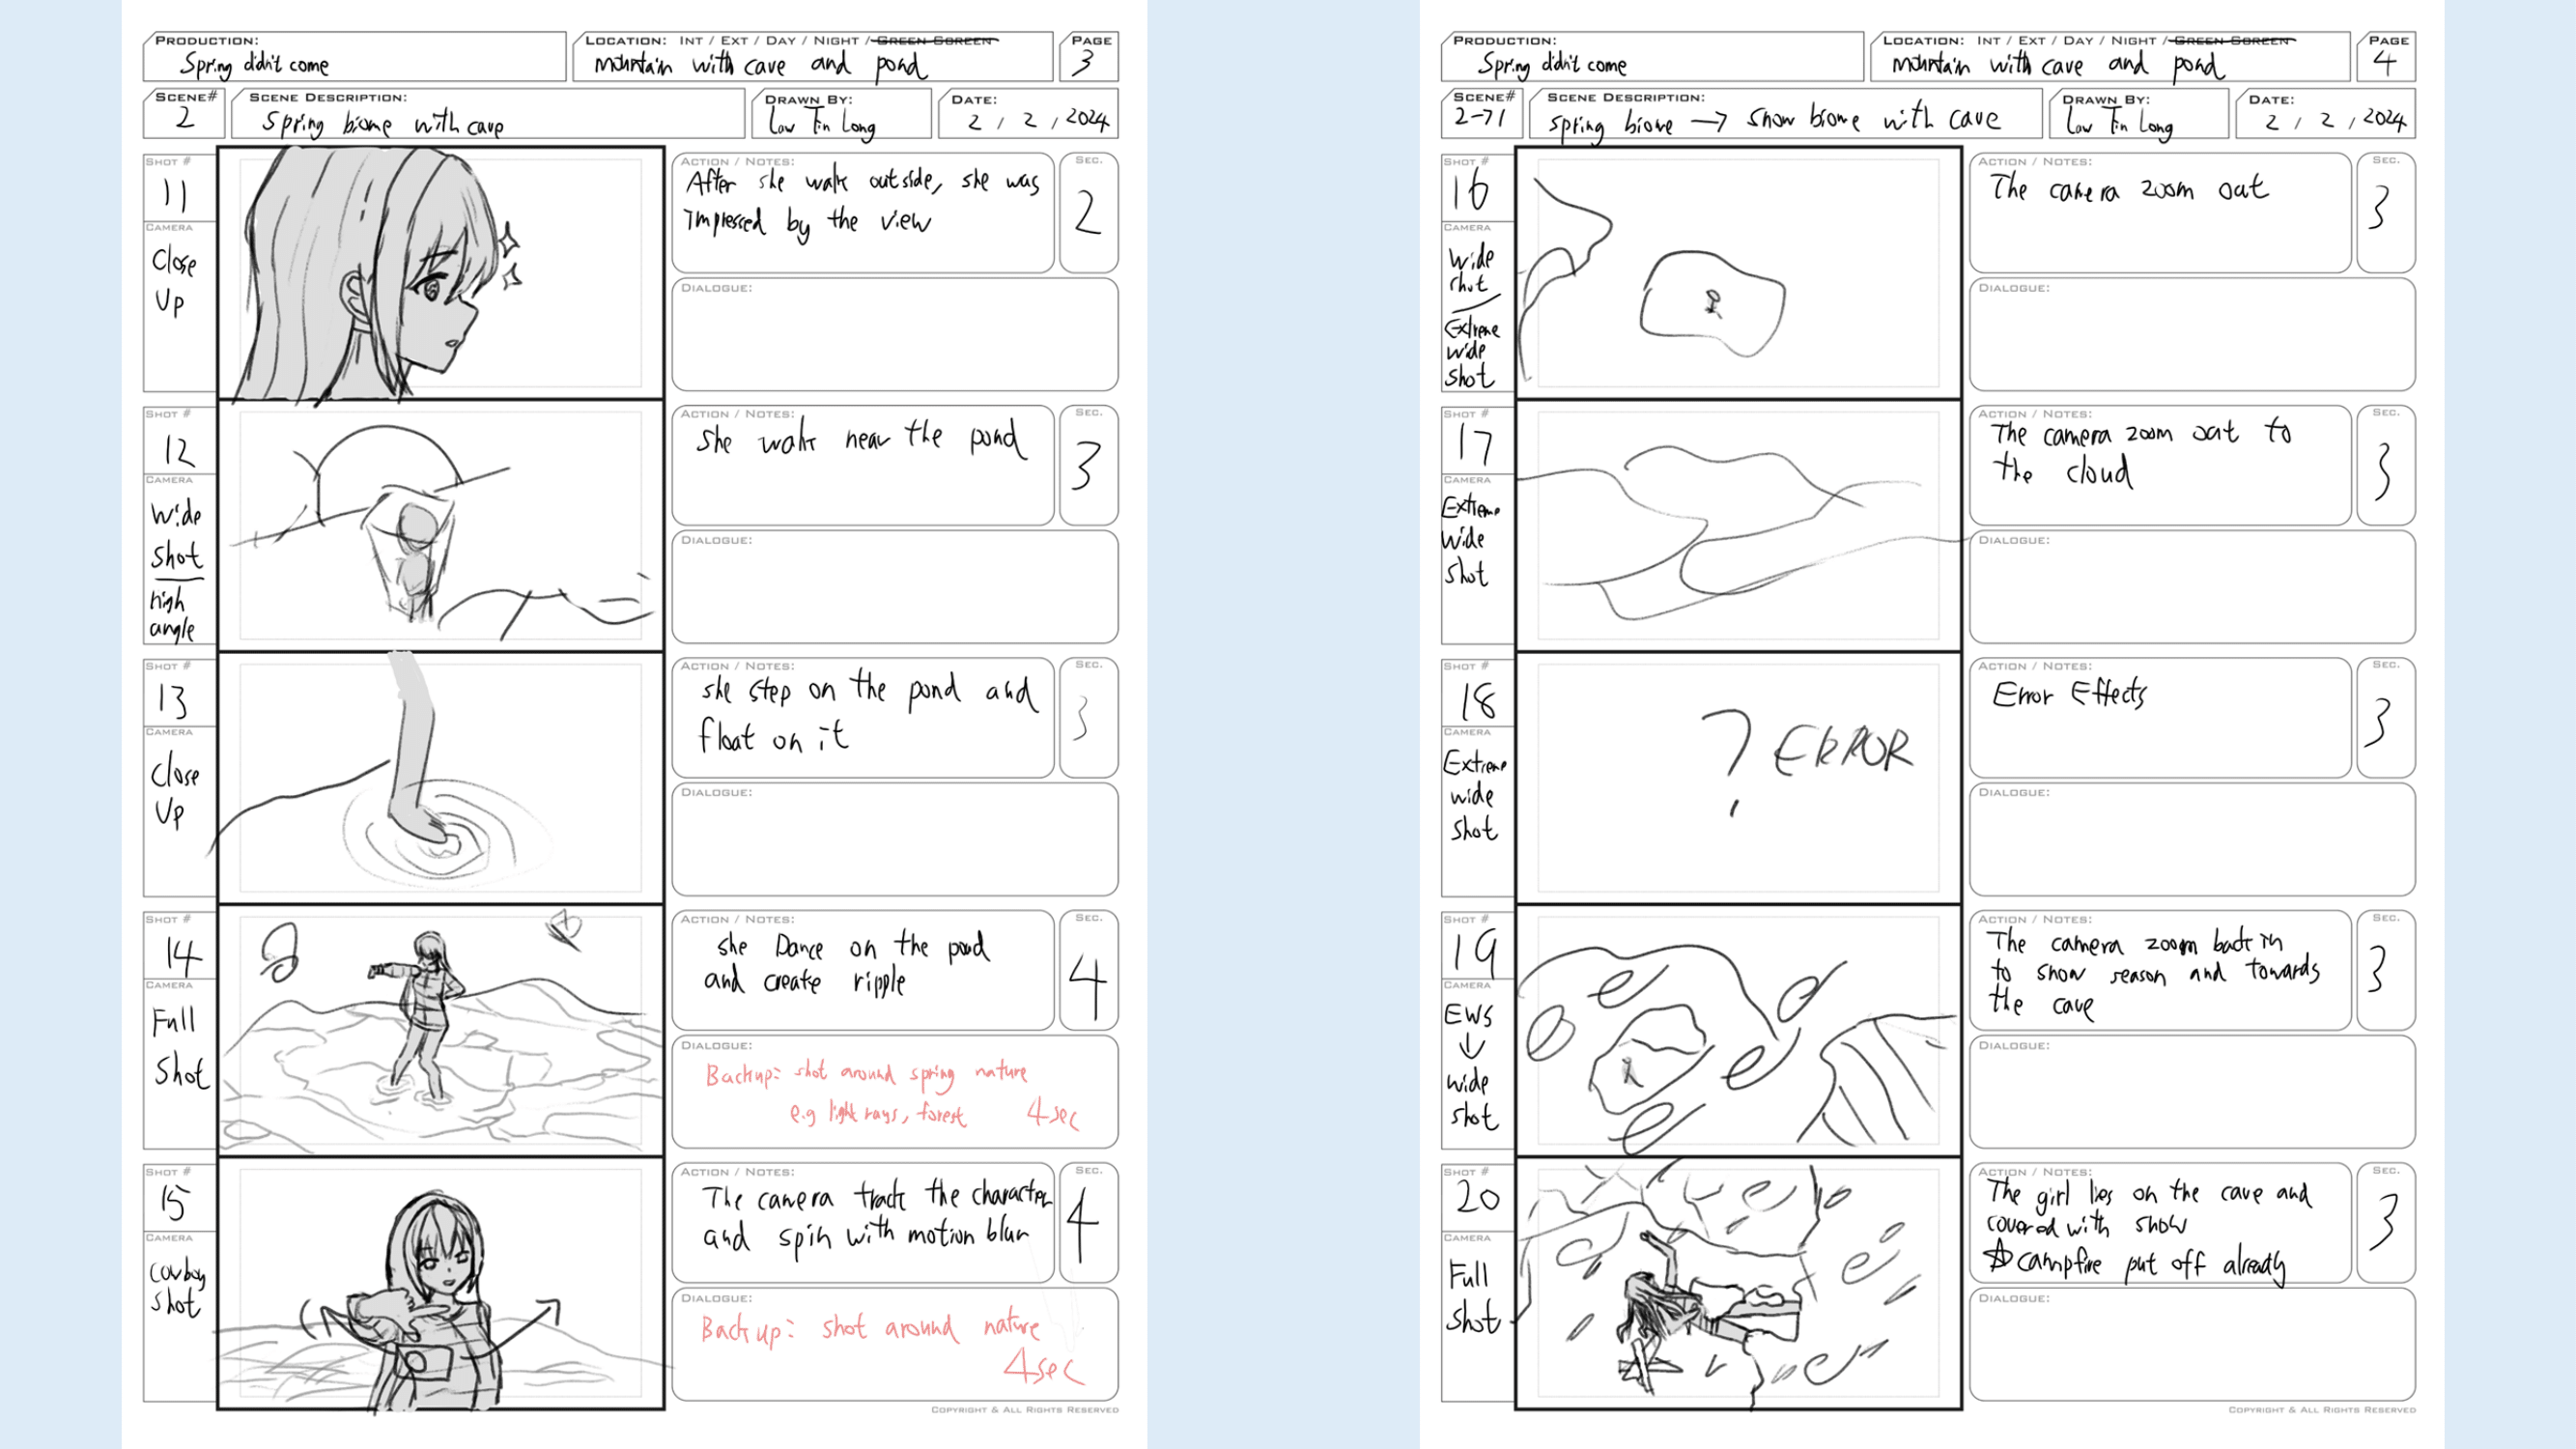 PRODUCTION:
Spring didn't come
LOCATION: INT / EXT / DAY / NIGHT / GREEN SCREEN
mountain with cave and pond
PAGE
3
SCENE#
2
SCENE DESCRIPTION:
Spring biome with cave
DRAWN BY:
Low Tin Long
DATE:
2 / 2 , 2024
SHOT #
11
CAMERA
Close
Up
ACTION / NOTES:
After she walk outside, she was
impressed by the view
SEC.
2
DIALOGUE:
SHOT #
12
CAMERA
Wide
Shot
high
angle
ACTION / NOTES:
She walk near the pond
SEC.
3
DIALOGUE:
SHOT #
13
CAMERA
Close
Up
ACTION / NOTES:
she step on the pond and
float on it
SEC.
3
DIALOGUE:
SHOT #
14
CAMERA
Full
Shot
ACTION / NOTES:
she Dance on the pond
and create ripple
SEC.
4
DIALOGUE:
Backup: shot around spring nature
e.g light rays, forest 4sec
SHOT #
15
CAMERA
Cowboy
Shot
ACTION / NOTES:
The camera track the character
and spin with motion blur
SEC.
4
DIALOGUE:
Backup: shot around nature
4sec
COPYRIGHT & ALL RIGHTS RESERVED
PRODUCTION:
Spring didn't come
LOCATION: INT / EXT / DAY / NIGHT / GREEN SCREEN
mountain with cave and pond
PAGE
4
SCENE#
2→1
SCENE DESCRIPTION:
spring biome → snow biome with cave
DRAWN BY:
Low Tin Long
DATE:
2 / 2 , 2024
SHOT #
16
CAMERA
Wide
shot
Extreme
wide
shot
ACTION / NOTES:
The camera zoom out
SEC.
3
DIALOGUE:
SHOT #
17
CAMERA
Extreme
Wide
Shot
ACTION / NOTES:
The camera zoom out to
the cloud
SEC.
3
DIALOGUE:
SHOT #
18
CAMERA
Extreme
wide
shot
? ERROR
ACTION / NOTES:
Error Effects
SEC.
3
DIALOGUE:
SHOT #
19
CAMERA
EWS
↓
wide
shot
ACTION / NOTES:
The camera zoom back in
to snow season and towards
the cave
SEC.
3
DIALOGUE:
SHOT #
20
CAMERA
Full
Shot
ACTION / NOTES:
The girl lies on the cave and
covered with snow
☆ campfire put off already
SEC.
3
DIALOGUE:
COPYRIGHT & ALL RIGHTS RESERVED